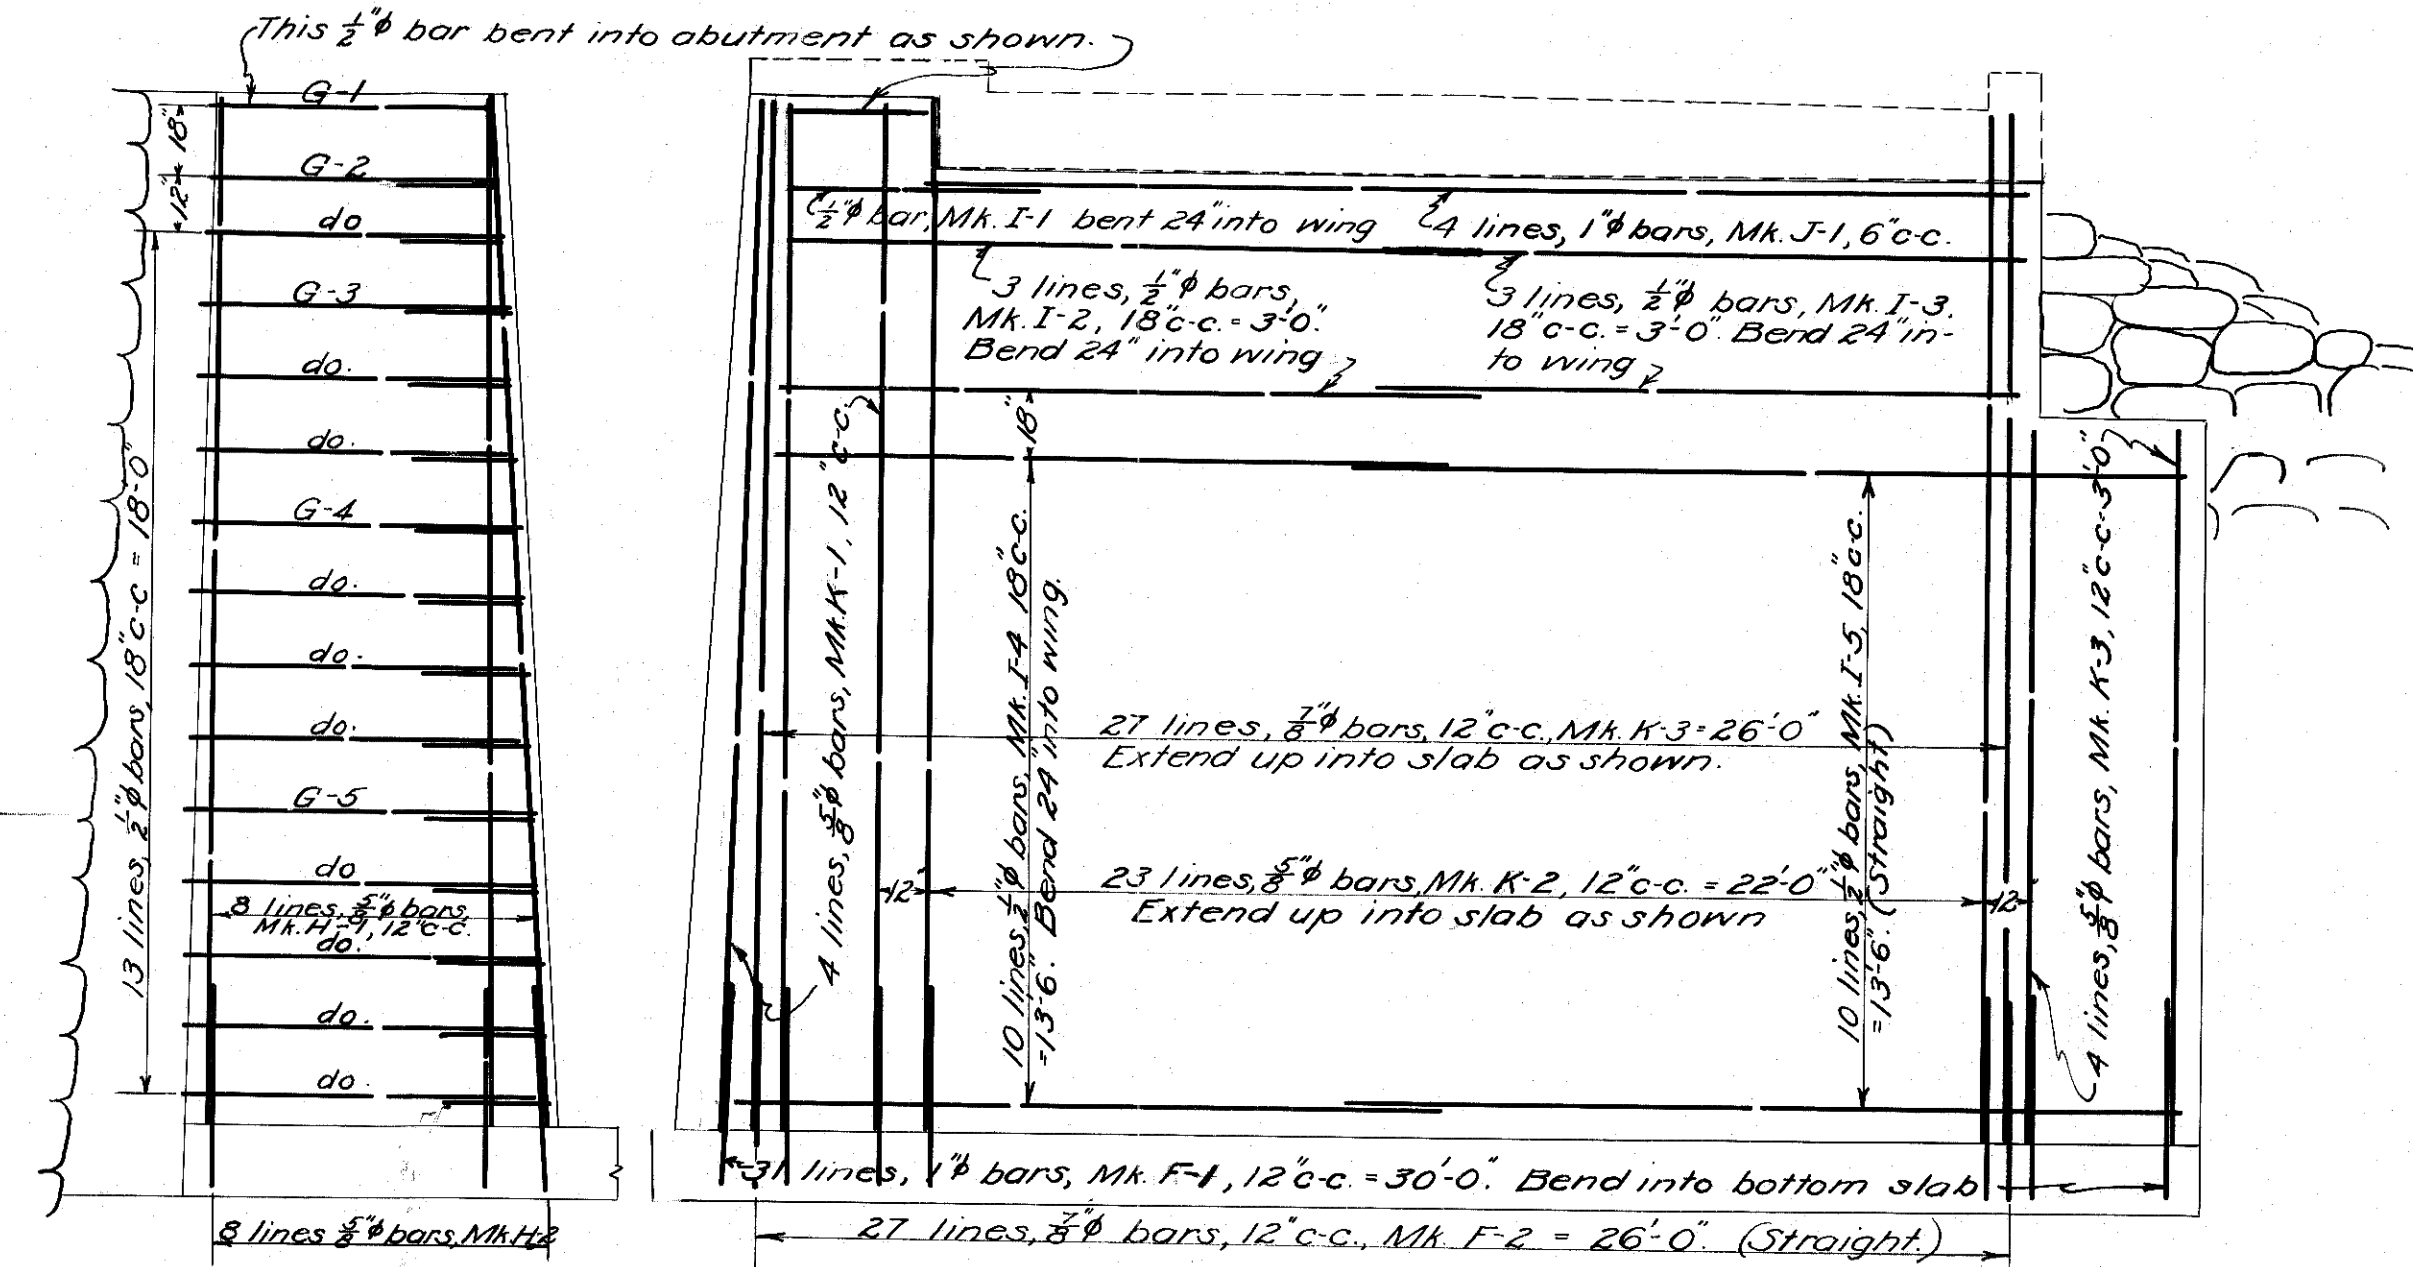 This 1/2"ϕ bar bent into abutment as shown.
G-1
18"
G-2
12"
do
G-3
do.
do.
G-4
do.
do.
do.
G-5
do
8 lines, 5/8"ϕ bars,
Mk. H-1, 12"c-c.
do.
do.
do.
13 lines, 1/2"ϕ bars, 18"c-c = 18'-0"
8 lines 5/8"ϕ bars, Mk. H-2
1/2"ϕ bar, Mk. I-1 bent 24" into wing
4 lines, 1"ϕ bars, Mk. J-1, 6"c-c.
3 lines, 1/2"ϕ bars,
Mk. I-2, 18"c-c. = 3'-0".
Bend 24" into wing
3 lines, 1/2"ϕ bars, Mk. I-3.
18"c-c. = 3'-0". Bend 24" in-
to wing
18"
4 lines, 5/8"ϕ bars, Mk. K-1, 12"c-c.
10 lines, 1/2"ϕ bars, Mk. I-4 18"c-c.
=13'-6". Bend 24" into wing.
27 lines, 7/8"ϕ bars, 12"c-c., Mk. K-3 = 26'-0"
Extend up into slab as shown.
12"
23 lines, 5/8"ϕ bars, Mk. K-2, 12"c-c. = 22'-0"
Extend up into slab as shown
12"
10 lines, 1/2"ϕ bars, Mk. I-5, 18"c-c.
=13'-6". (Straight)
4 lines, 5/8"ϕ bars, Mk. K-3, 12"c-c=3'-0"
31 lines, 1"ϕ bars, Mk. F-1, 12"c-c. = 30'-0". Bend into bottom slab
27 lines, 7/8"ϕ bars, 12"c-c., Mk. F-2 = 26'-0". (Straight.)